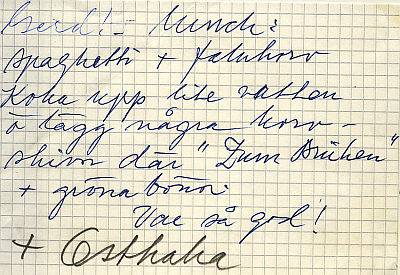 Gerd! - Lunch:
spaghetti + falukorv
Koka upp lite vatten
o lägg några korv-
skivor där "Dum Bruken"
+ gröna bönor.
Var så god!
+ Osthaka